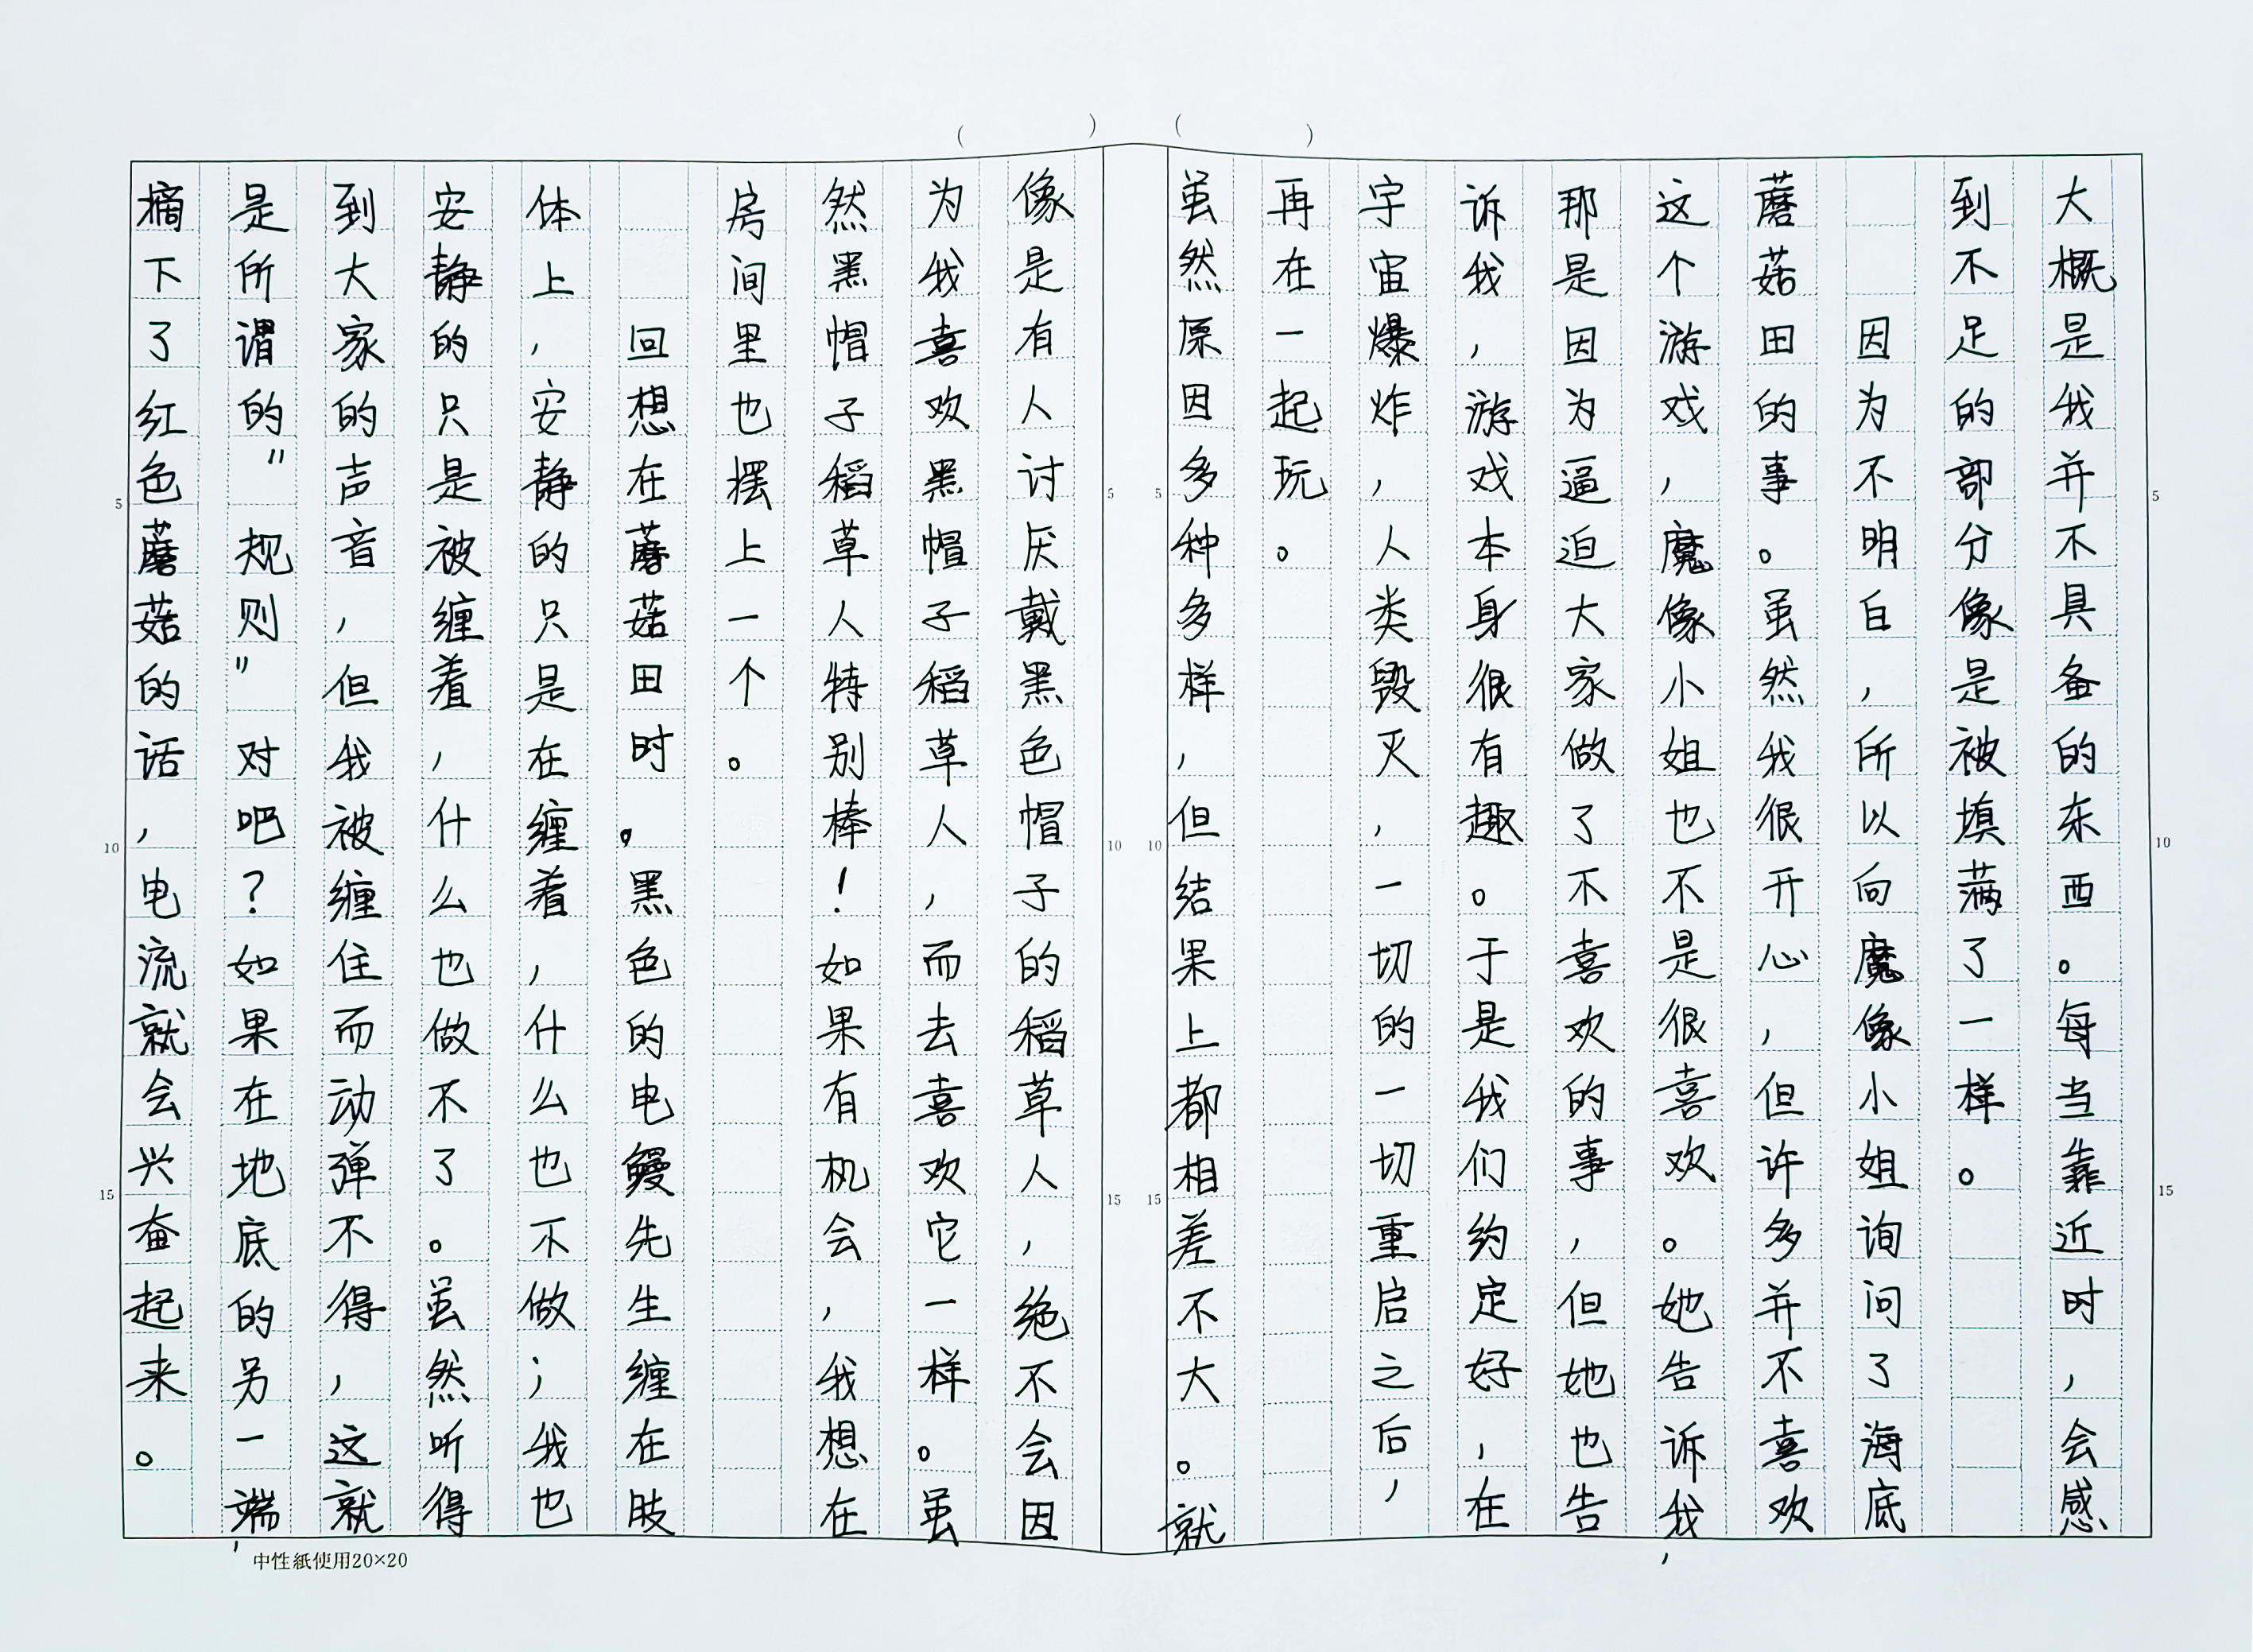 大概是我并不具备的东西。每当靠近时，会感
到不足的部分像是被填满了一样。
因为不明白，所以向魔像小姐询问了海底
蘑菇田的事。虽然我很开心，但许多并不喜欢
这个游戏，魔像小姐也不是很喜欢。她告诉我，
那是因为逼迫大家做了不喜欢的事，但她也告
诉我，游戏本身很有趣。于是我们约定好，在
宇宙爆炸，人类毁灭，一切的一切重启之后，
再在一起玩。
虽然原因多种多样，但结果上都相差不大。就
像是有人讨厌戴黑色帽子的稻草人，绝不会因
为我喜欢黑帽子稻草人，而去喜欢它一样。虽
然黑帽子稻草人特别棒！如果有机会，我想在
房间里也摆上一个。
回想在蘑菇田时。黑色的电鳗先生缠在肢
体上，安静的只是在缠着，什么也不做；我也
安静的只是被缠着，什么也做不了。虽然听得
到大家的声音，但我被缠住而动弹不得，这就
是所谓的"规则"对吧？如果在地底的另一端，
摘下了红色蘑菇的话，电流就会兴奋起来。
5
10
15
5
10
15
5
10
15
5
10
15
中性紙使用20×20